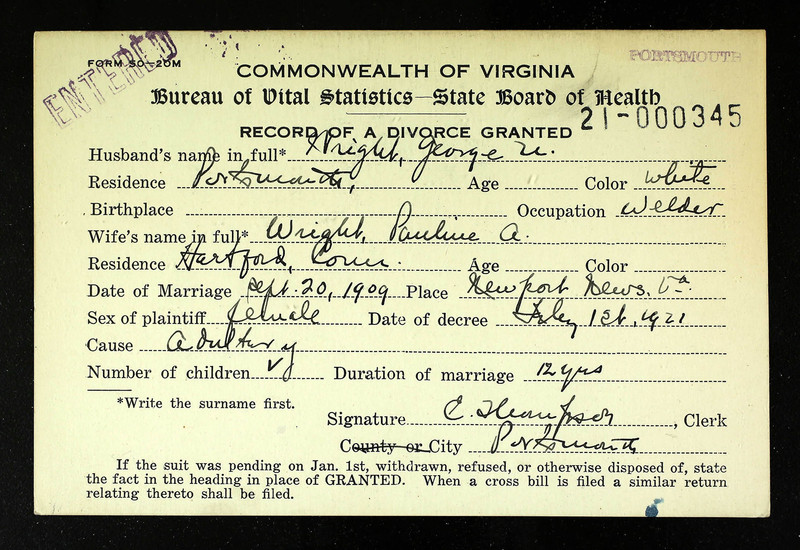 FORM SO-20M
ENTERED
PORTSMOUTH
COMMONWEALTH OF VIRGINIA
Bureau of Vital Statistics—State Board of Health
21-000345
RECORD OF A DIVORCE GRANTED
Husband's name in full* Wright, George
Residence Portsmouth, Age Color white
Birthplace Occupation Welder
Wife's name in full* Wright, Pauline A.
Residence Hartford, Conn. Age Color
Date of Marriage Sept. 20, 1909 Place Newport News, Va
Sex of plaintiff female Date of decree 1st, 1921
Cause Adultery
Number of children Duration of marriage 12 yrs
*Write the surname first.
Signature C. Thompson, Clerk
County or City Portsmouth
If the suit was pending on Jan. 1st, withdrawn, refused, or otherwise disposed of, state
the fact in the heading in place of GRANTED. When a cross bill is filed a similar return
relating thereto shall be filed.